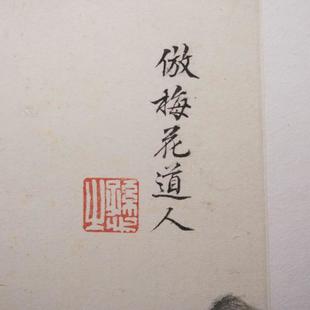 倣梅花道人